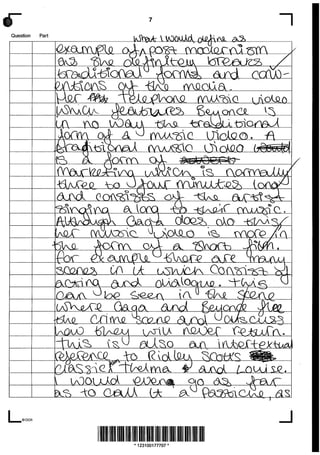 7
Question Part
what I would define as
example of a post modernism
as she definitely breaks
traditional forms and conv-
entions of the media.
Her Telephone music video
which features Beyonce is
in no way the traditional
form of a music video. A
traditional music video
is a form of
marketing which is normally
three to four minutes long
and consists of the artist
singing along to their music.
Although Gaga does do this
her music video is more in
the form of a short film.
For example there are many
scenes in it which consist of
acting and dialogue. This
can be seen in the scene
where Gaga and Beyonce flee
the crime scene and discuss
how they will never return.
This is also an intertextual
reference to Ridley Scott's
classic Thelma and Louise.
I would even go as far
as to call it a pastiche, as